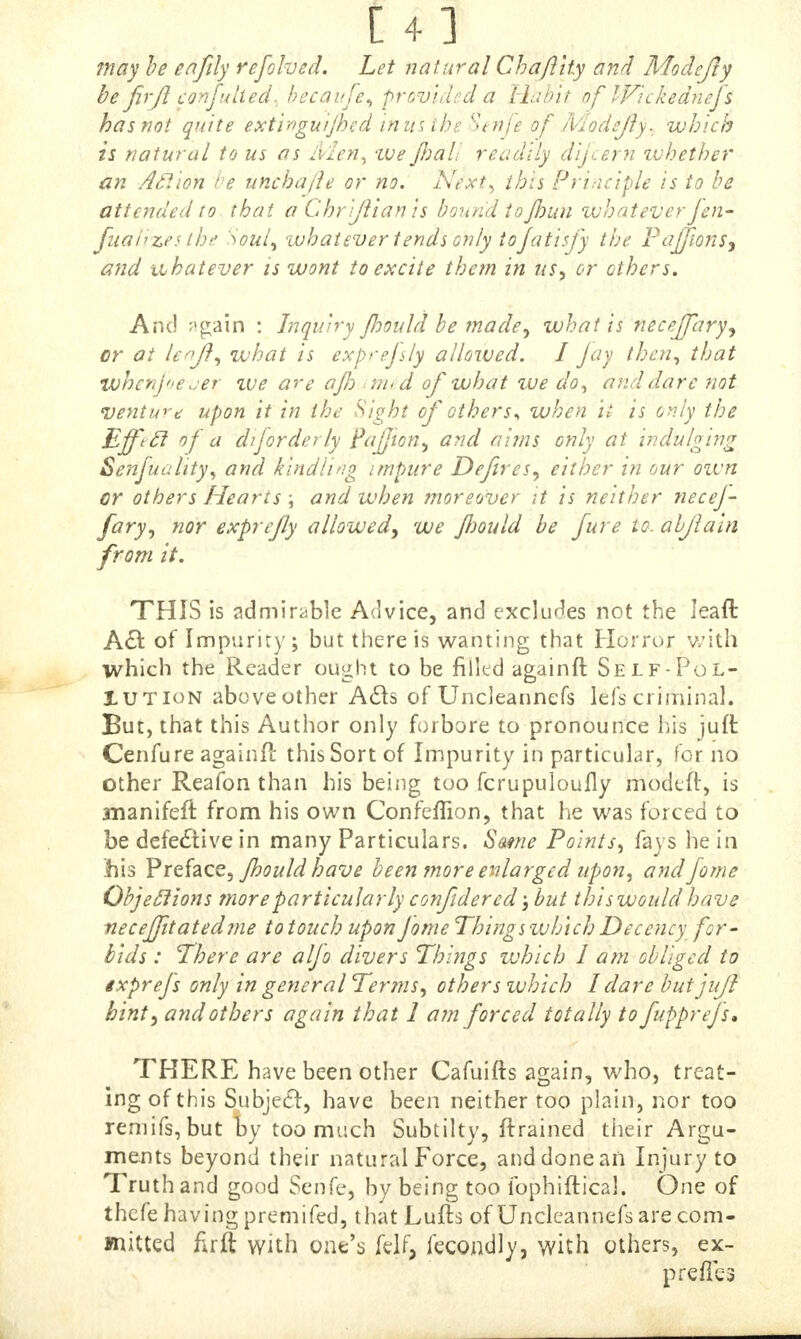 [ 4 ]
may be eaſily reſolved. Let natural Chaſtity and Modeſty
be firſt conſulted, becauſe, provided a Habit of Wickedneſs
has not quite extinguiſhed in us the Senſe of Modeſty, which
is natural to us as Men, we ſhall readily diſcern whether
an Action be unchaſte or no. Next, this Principle is to be
attended to that a Chriſtian is bound to ſhun whatever ſen-
ſualizes the Soul, whatever tends only to ſatisfy the Paſſions,
and whatever is wont to excite them in us, or others.
And again : Inquiry ſhould be made, what is neceſſary,
or at leaſt, what is expreſsly allowed. I ſay then, that
whenſoever we are aſhamed of what we do, and dare not
venture upon it in the Sight of others, when it is only the
Effect of a diſorderly Paſſion, and aims only at indulging
Senſuality, and kindling impure Deſires, either in our own
or others Hearts ; and when moreover it is neither neceſ-
ſary, nor expreſly allowed, we ſhould be ſure to abſtain
from it.
THIS is admirable Advice, and excludes not the leaſt
Act of Impurity; but there is wanting that Horror with
which the Reader ought to be filled againſt SELF-POL-
LUTION above other Acts of Uncleanneſs leſs criminal.
But, that this Author only forbore to pronounce his juſt
Cenſure againſt this Sort of Impurity in particular, for no
other Reaſon than his being too ſcrupulouſly modeſt, is
manifeſt from his own Confeſſion, that he was forced to
be defective in many Particulars. Some Points, ſays he in
his Preface, ſhould have been more enlarged upon, and ſome
Objections more particularly conſidered ; but this would have
neceſſitated me to touch upon ſome Things which Decency for-
bids : There are alſo divers Things which I am obliged to
expreſs only in general Terms, others which I dare but juſt
hint, and others again that I am forced totally to ſuppreſs.
THERE have been other Caſuiſts again, who, treat-
ing of this Subject, have been neither too plain, nor too
remiſs, but by too much Subtilty, ſtrained their Argu-
ments beyond their natural Force, and done an Injury to
Truth and good Senſe, by being too ſophiſtical. One of
theſe having premiſed, that Luſts of Uncleanneſs are com-
mitted firſt with one's ſelf, ſecondly, with others, ex-
preſſes